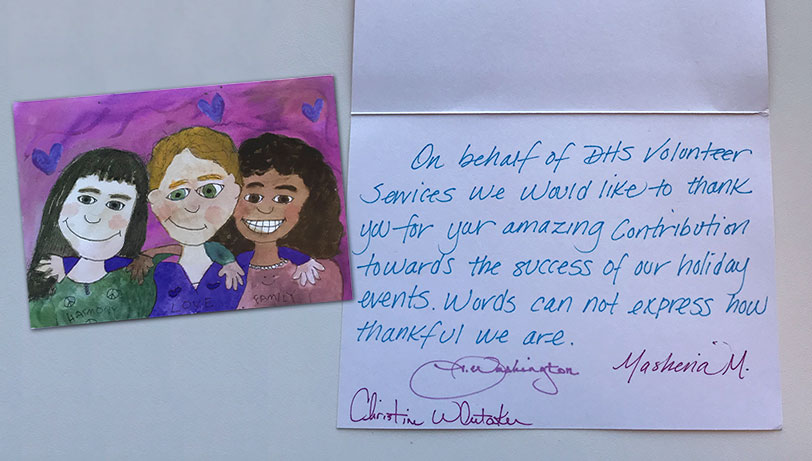 HARMONY
LOVE
FAMILY
On behalf of DHS Volunteer
Services we would like to thank
you for your amazing Contribution
towards the success of our holiday
events. Words can not express how
thankful we are.
Washington
Masheria M.
Christine Whitaker